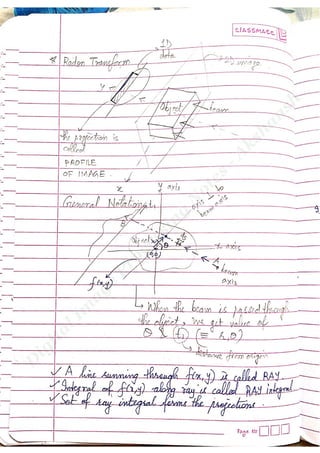 classmate
* Radon Transform
1D
data
2D image
Object
beam
the projection is
called
PROFILE
OF IMAGE.
y axis
General Notations:
x axis
beam
axis
f(x,y)
→ When the beam is passed through
the object, we get value of
θ &
Distance from origin
✓ A line running through f(x,y) is called RAY.
✓ Integral of f(x,y) along ray is called RAY integral
✓ Set of ray integral forms the projections.
Page No